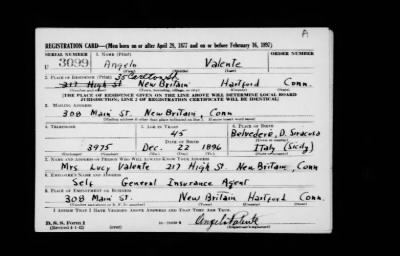 A
REGISTRATION CARD—(Men born on or after April 28, 1877 and on or before February 16, 1897)
SERIAL NUMBER 1. NAME (Print) ORDER NUMBER
U 3099 Angelo Valente
(First) (Middle) (Last)
35 Carlton St.
2. PLACE OF RESIDENCE (Print)
217 High St New Britain Hartford Conn.
(Number and street) (Town, township, village, or city) (County) (State)
[THE PLACE OF RESIDENCE GIVEN ON THE LINE ABOVE WILL DETERMINE LOCAL BOARD
JURISDICTION; LINE 2 OF REGISTRATION CERTIFICATE WILL BE IDENTICAL]
3. MAILING ADDRESS
308 Main St. New Britain, Conn
[Mailing address if other than place indicated on line 2. If same insert word same]
4. TELEPHONE 5. AGE IN YEARS 6. PLACE OF BIRTH
45 Belvedere, D. Siracusa
DATE OF BIRTH
3975 Dec. 22 1896 Italy (Sicily)
(Exchange) (Number) (Mo.) (Day) (Yr.) (State or country)
7. NAME AND ADDRESS OF PERSON WHO WILL ALWAYS KNOW YOUR ADDRESS
Mrs Lucy Valente 217 High St. New Britain, Conn
8. EMPLOYER'S NAME AND ADDRESS
Self General Insurance Agent
9. PLACE OF EMPLOYMENT OR BUSINESS
308 Main St. New Britain Hartford Conn.
(Number and street or R. F. D. number) (Town) (County) (State)
I AFFIRM THAT I HAVE VERIFIED ABOVE ANSWERS AND THAT THEY ARE TRUE.
D. S. S. Form 1 Angelo Valente
(Revised 4-1-42) (over) (Registrant's signature)